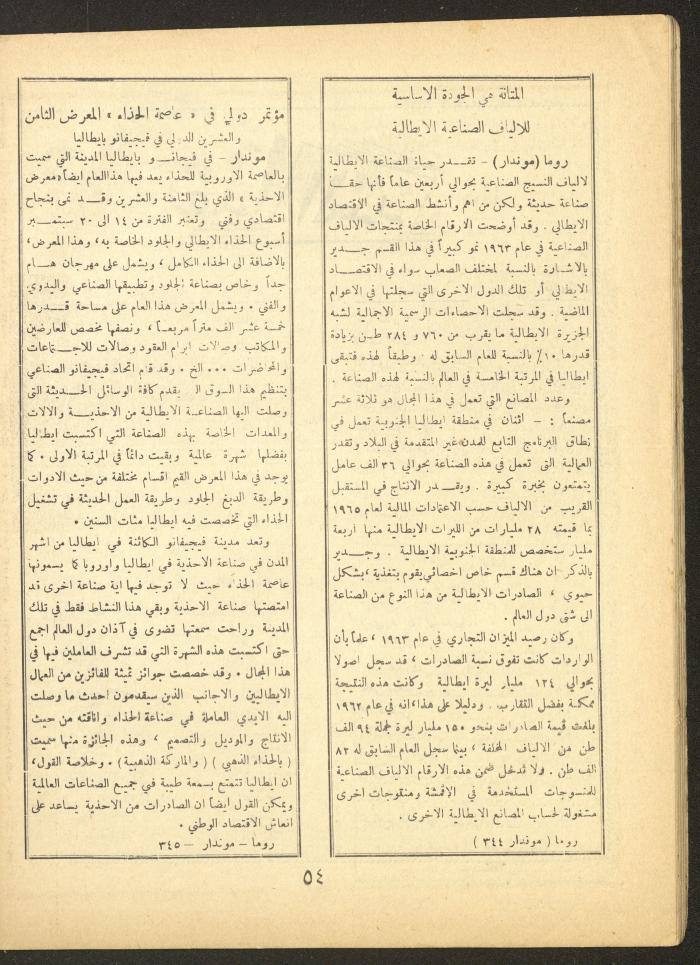 المتانة هي الجودة الاساسية
للالياف الصناعية الايطالية
روما (موندار) – تقـــدر حياة الصناعة الايطالية
لالياف النسيج الصناعية بحوالي أربعين عاماً فأنها حقـا
صناعة حديثة ولكن من اهم وأنشط الصناعة في الاقتصاد
الايطالي . وقد أوضحت الارقام الخاصة بمنتجات الالياف
الصناعية في عام ١٩٦٣ نمو كبيراً في هذا القسم جــدير
بالاشارة بالنسبة لمختلف الصعاب سواء في الاقتصــاد
الايطالي أو تلك الدول الاخرى التي سجلتها في الاعوام
الماضية . وقد سجلت الاحصاءات الرسمية الاجمالية لشبه
الجزيرة الايطالية ما يقرب من ٧٦٠ و ٢٨٤ طــن بزيادة
قدرها ١٠٪ بالنسبة للعام السابق له . وطبقاً لهذه فتبقى
ايطاليا في المرتبة الخامسة في العالم بالنسبة لهذه الصناعة .
وعدد المصانع التي تعمل في هذا المجال هو ثلاثة عشر
مصنعاً : – أثنان في منطقة ايطاليا الجنوبية تعمل في
نطاق البرنامج التابع للمدن غير المتقدمة في البلاد وتقدر
العمالية التى تعمل في هذه الصناعة بحوالي ٣٦ الف عامل
يتمتعون بخبرة كبيرة . ويقــدر الانتاج في المستقبل
القريب من الالياف حسب الاعتمادات المالية لعام ١٩٦٥
بما قيمته ٢٨ مليارات من الليرات الايطالية منها أربعة
مليار ستخصص للمنطقة الجنوبية الايطالية . وجــدير
بالذكر ان هناك قسم خاص اخصائي يقوم بتغذية ، بشكل
حيوي ، الصادرات الايطالية من هذا النوع من الصناعة
الى شتى دول العالم .
وكان رصيد الميزان التجاري في عام ١٩٦٣ ، علماً بأن
الواردات كانت تفوق نسبة الصادرات ، قد سجل اصولا
بحوالي ١٢٤ مليار ليرة ايطالية وكانت هذه النتيجة
ممكنة بفضل التقارب . ودليلا على هذا ، انه في عام ١٩٦٢
بلغت قيمة الصادرات بنحو ١٥٠ مليار ليرة لجملة ٩٤ الف
طن من الالياف المختلفة ، بينما سجل العام السابق له ٨٢
الف طن . ولا تدخل ضمن هذه الارقام الالياف الصناعية
للمنسوجات المستخدمة في الاقمشة ومنتوجات اخرى
مشغولة لحساب المصانع الايطالية الاخرى .
روما ( موندار ٣٤٤ )
مؤتمر دولي في « عاصمة الحذاء » المعرض الثامن
والعشرين الدولي في فيجيفانو بايطاليا
موندار – في فيجانـو بايطاليا المدينة التي سميت
بالعاصمة الاوروبية للحذاء يعد فيها هذا العام ايضاً « معرض
الاحذية » الذي يلغ الثامنة والعشرين وقــد نمى بنجاح
اقتصادي وفني وتعتبر الفترة من ١٤ الى ٢٠ سبتمــبر
أسبوع الحذاء الايطالي والجلود الخاصة به ، وهذا المعرض،
بالاضافة الى الحذاء الكامل ، ويشمل على مهرجان هــام
جداً وخاص بصناعة الجلود وتطبيقها الصناعي واليدوي
والفني . ويشمل المعرض هذا العام على مساحة قــدرها
خمسة عشر الف متراً مربعـاً ، ونصفها مخصص للعارضين
والمكاتب وصالات ابرام العقود وصالات للاجتماعات
والمحاضرات ٠٠٠ الخ . وقد قام اتحاد فيجيفانو الصناعي
بتنظيم هذا السوق يقدم كافة الوسائل الحــديثة التى
وصلت اليها الصناعية الايطالية من الاحذيــة والالات
والمعدات الخاصة بهذه الصناعة التي اكتسبت ايطاليا
بفضلها شهرة عالمية وبقيت دائماً في المرتبة الاولى . كا
يوجد في هذا المعرض القيم اقسام مختلفة من حيث الادوات
وطريقة الدبغ الجلود وطريقة العمل الحديثة في تشغيل
الحذاء التي تخصصت فيه ايطاليا مئات السنين .
وتعد مدينة فيجيفانو الكائنة في ايطاليا من اشهر
المدن في صناعة الاحذية في ايطاليا واوروبا كا يسمونها
عاصمة الحذاء حيث لا توجد فيها اية صناعة اخرى قد
امتصتها صناعة الاحذية وبقي هذا النشاط فقط في تلك
المدينة وراحت سمعتها تضوى في آذان دول العالم اجمع
حتى اكتسبت هذه الشهرة التي قد تشرف العاملين فيها في
هذا المجال . وقد خصصت جوائز ثمينة للفائزين من العمال
الايطاليين والاجانب الذين سيقدمون احدث ما وصلت
اليه الايدي العاملة في صناعة الحذاء واناقته من حيث
الانتاج والموديل والتصميم ، وهذه الجائزة منها سميت
( بالحذاء الذهبي ) ( والماركة الذهبية ) . وخلاصة القول ،
ان ايطاليا تتمتع بسمعة طيبة في جميع الصناعات العالمية
ويمكن القول ايضاً ان الصادرات من الاحذية يساعد على
انعاش الاقتصاد الوطني .
روما – موندار – ٣٤٥
٥٤